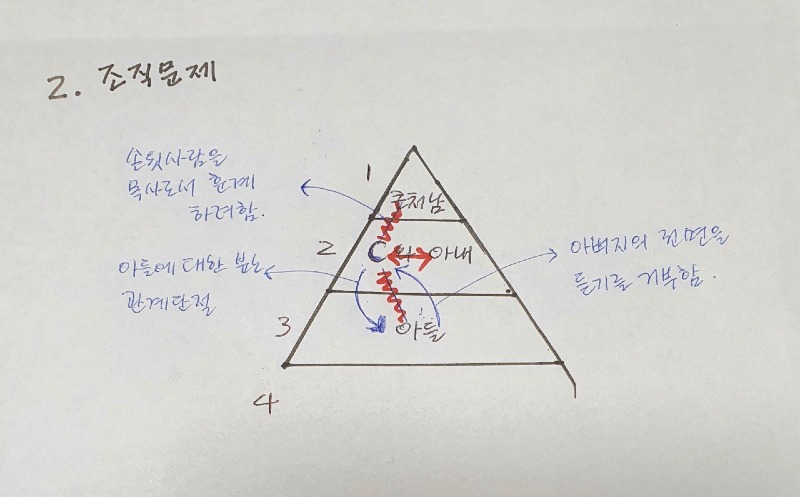 2. 조직문제
손윗사람을
목사로서 훈계
하려함.
1
큰처남
2
C
아내
아들에 대한 분노
관계단절
아버지의 권면을
듣기를 거부함.
3
아들
4